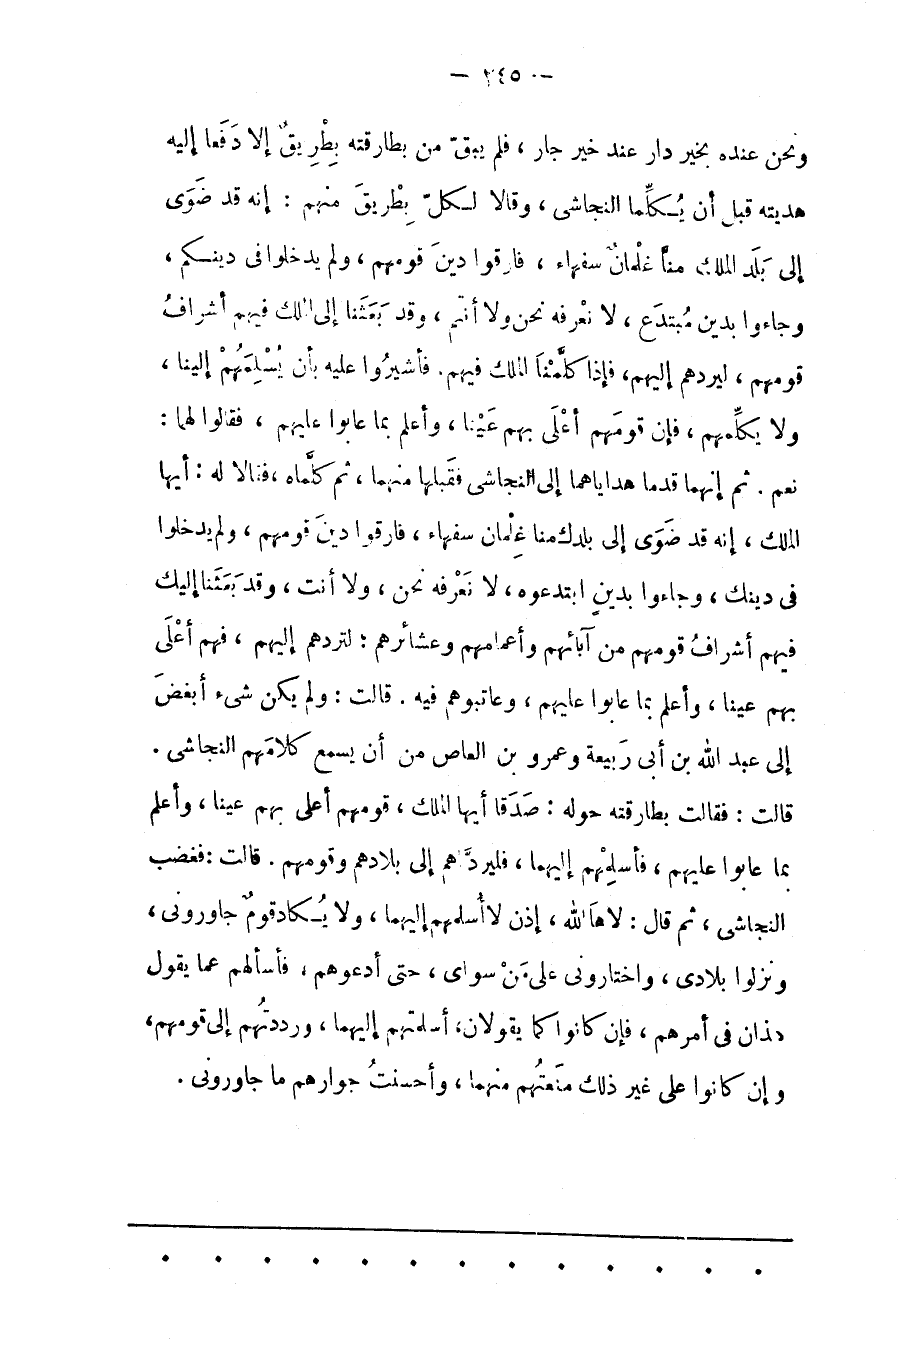 — ٢٤٥ —
ونحن عنده بخير دار عند خير جار ، فلم يبق من بطارقته بِطْرِيقٌ إلا دَفَعا إليه
هديته قبل أن يُكلِّما النجاشى ، وقالا لكلّ بِطْريقَ منهم : إنه قد ضَوَى
إلى بَلَد الملك منَّا غلْمانٌ سفهاء ، فارقوا دينَ قومهم ، ولم يدخلوا فى دينكم ،
وجاءوا بدين مُبتدَع ، لا نعْرفه نحن ولا أنتم ، وقد بَعَثَنا إلى الملك فيهم أشرافُ
قومهم ، ليردهم إليهم، فإذا كلَّمْنا الملك فيهم. فأشيرُوا عليه بأن يُسْلِمَهُمْ إلينا ،
ولا يكلِّمهم ، فإن قومَهم أعْلَى بهم عَيْنا ، وأعلم بما عابوا عليهم ، فقالوا لهما :
نعم . ثم إنهما قدما هداياهما إلى النجاشى فقَبلها منهما ، ثم كلَّماه ، فقالا له : أيها
الملك ، إنه قد ضَوَى إلى بلدك منا غِلْمان سفهاء ، فارقوا دينَ قومهم ، ولم يدخلوا
فى دينك ، وجاءوا بدينٍ ابتدعوه ، لا نَعْرفه نحن ، ولا أنت ، وقد بَعَثَنا إليك
فيهم أشرافُ قومهم من آبائهم وأعمامهم وعشائرهم : لتردهم إليهم ، فهم أعْلَى
بهم عينا ، وأعلم بما عابوا عليهم ، وعاتبوهم فيه . قالت : ولم يكن شىء أبغضَ
إلى عبد الله بن أبى رَبيعة وعمرو بن العاص من أن يسمع كلامَهم النجاشى .
قالت : فقالت بطارقته حوله : صَدَقا أيها الملك ، قومهم أعلى بهم عينا ، وأعلم
بما عابوا عليهم ، فأسلِمْهم إليهما ، فليردَّاهم إلى بلادهم وقومهم . قالت : فغضب
النجاشى ، ثم قال : لاهَا الله ، إذن لا أُسلمهم إليهما ، ولا يُكاد قومٌ جاورونى ،
ونزلوا بلادى ، واختارونى على مَنْ سواى ، حتى أدعوهم ، فأسألهم عما يقول
هذان فى أمرهم ، فإن كانوا كما يقولان، أسلمتهم إليهما ، ورددتُهم إلى قومهم،
وإن كانوا على غير ذلك منَعتُهم منهما ، وأحسنتُ جوارهم ما جاورونى .